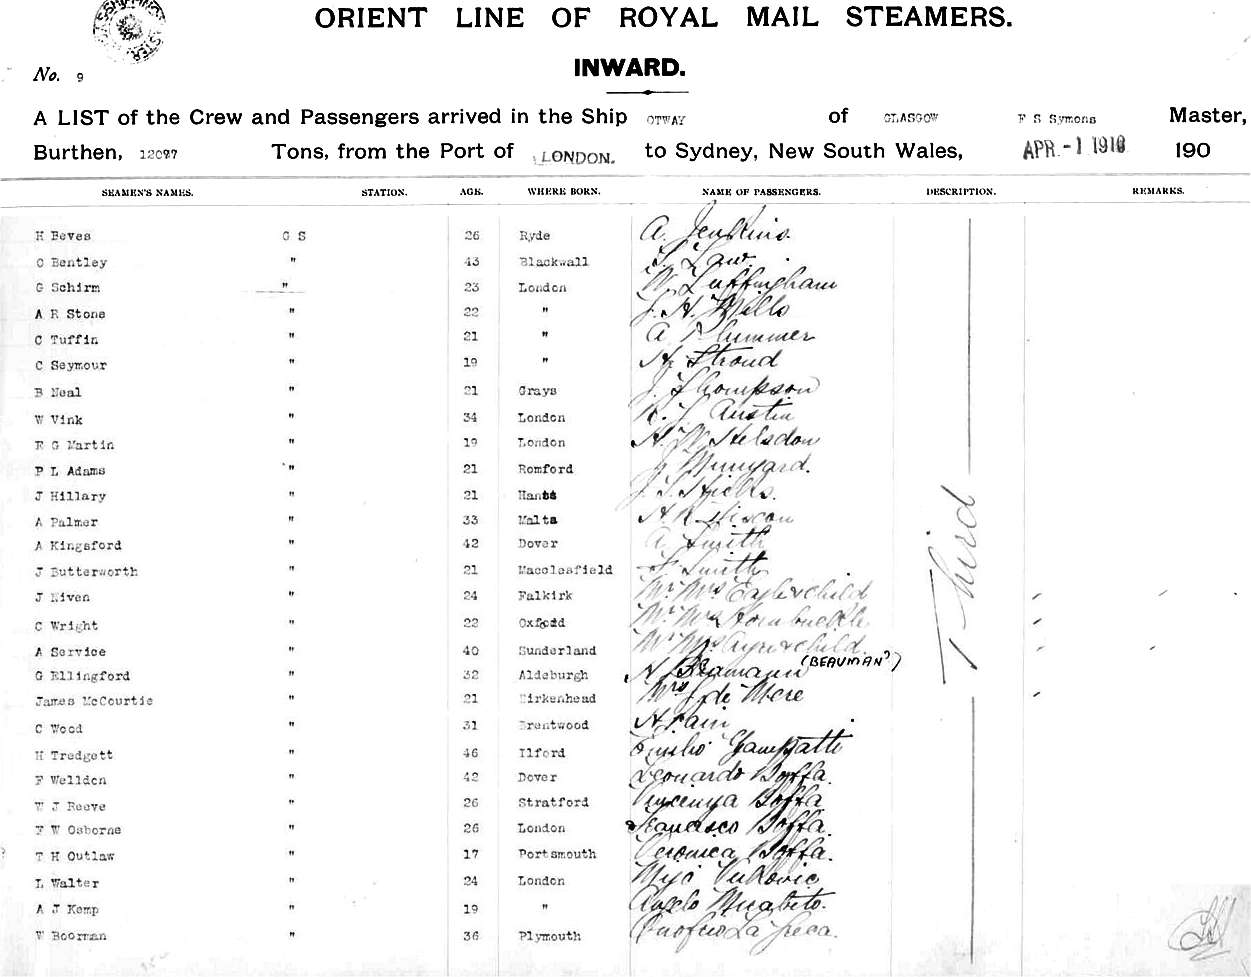 ORIENT LINE OF ROYAL MAIL STEAMERS.
No. 9
INWARD.
A LIST of the Crew and Passengers arrived in the Ship OTWAY of GLASGOW F S Symons Master,
Burthen, 12077 Tons, from the Port of LONDON. to Sydney, New South Wales, APR -1 1910 190
SEAMEN'S NAMES. STATION. AGE. WHERE BORN. NAME OF PASSENGERS. DESCRIPTION. REMARKS.
H Beves G S 26 Ryde A. Jenkins.
C Bentley " 43 Blackwall Law.
G Schirm " 23 London W. Luffingham
A R Stone " 22 " J. H. Mills
C Tuffin " 21 " A Plummer
C Seymour " 19 " H. Stroud
B Neal " 21 Grays J. Thompson
W Vink " 34 London R. J. Austin
E G Martin " 19 London H. W. Helsdon
P L Adams " 21 Romford J. Munyard.
J Hillary " 21 Hants J. S. Hicks.
A Palmer " 33 Malta
A Kingsford " 42 Dover A. Smith
J Butterworth " 21 Macclesfield F. Smith
J Niven " 24 Falkirk Mr. Mrs. Eagle & child
C Wright " 22 Oxford Mr. Mrs Hornbuckle
A Service " 40 Sunderland Mr Mrs Ayre & child.
G Ellingford " 32 Aldeburgh N Beamann (BEAUMAN?)
James McCourtie " 21 Birkenhead Mrs J. de Mere
C Wood " 31 Brentwood H. Pain
H Tredgett " 46 Ilford Emilio
F Wellden " 42 Dover Leonardo Boffa.
W J Reeve " 26 Stratford Vincenza Boffa
F W Osborne " 26 London Francisco Boffa.
T H Outlaw " 17 Portsmouth Veronica Boffa.
L Walter " 24 London Mijo Vukovic
A J Kemp " 19 " Angelo
W Boorman " 36 Plymouth Onofrio La Greca.
Third